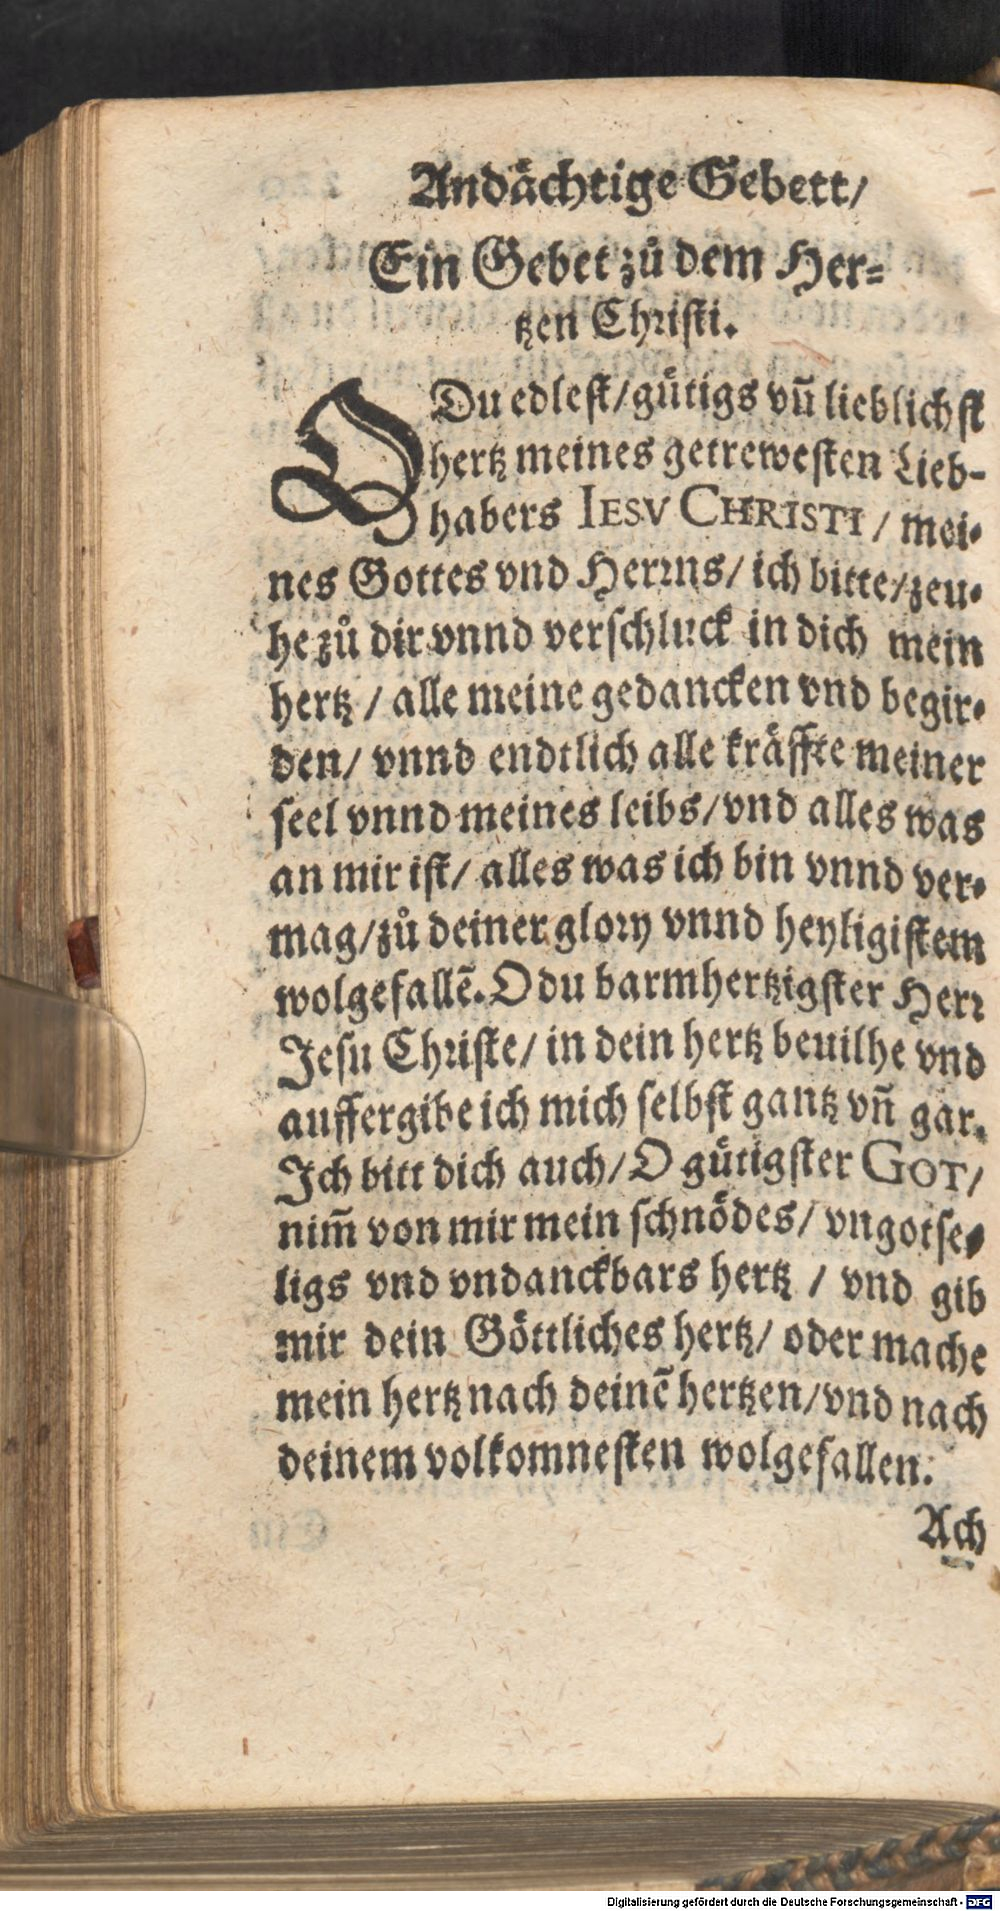 Andaͤchtige Gebett/
Ein Gebet zuͦ dem Her⸗
tzen Chriſti.
O Du edleſt/guͤtigs vñ lieblichſt
hertz meines getreweſten Lieb-
habers IESV CHRISTI / mei⸗
nes Gottes vnd Herꝛns/ ich bitte/zeu⸗
he zuͦ dir vnnd verſchluck in dich mein
hertz / alle meine gedancken vnd begir⸗
den/ vnnd endtlich alle kraͤffte meiner
ſeel vnnd meines leibs/vnd alles was
an mir iſt/ alles was ich bin vnnd ver⸗
mag/zuͦ deiner gloꝛy vnnd heyligiſtem
wolgefallẽ. O du barmhertzigſter Herꝛ
Jeſu Chꝛiſte/ in dein hertz beuilhe vnd
auffergibe ich mich ſelbſt gantz vñ gar.
Ich bitt dich auch/ O guͤtigſter GOT/
nim̃ von mir mein ſchnoͤdes/ vngotſe⸗
ligs vnd vndanckbars hertz / vnd gib
mir dein Goͤttliches hertz/ oder mache
mein hertz nach deinẽ hertzen/vnd nach
deinem volkomneſten wolgefallen.
Ach
Digitalisierung gefördert durch die Deutsche Forschungsgemeinschaft - DFG